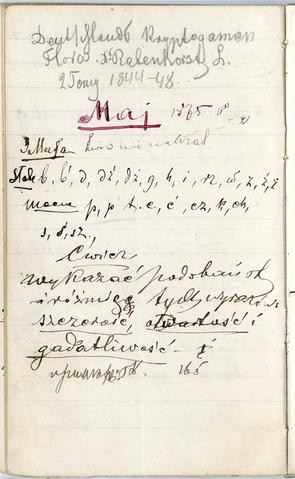 Deutschlands Kryptogamen
Flora Dr Rabenhorst L.
2 Tomy 1844-48.
Maj
3 Maja
b, b', d, dź, dż, g, h, i, rz, w, z, ż, ź
mocne p, p', t, c, ć, cz, k, ch,
s, ś, sz,
Ćwicz
wykazać podobieńst
i różnicę tych wyrazów
szczerość, otwartość i
gadatliwość